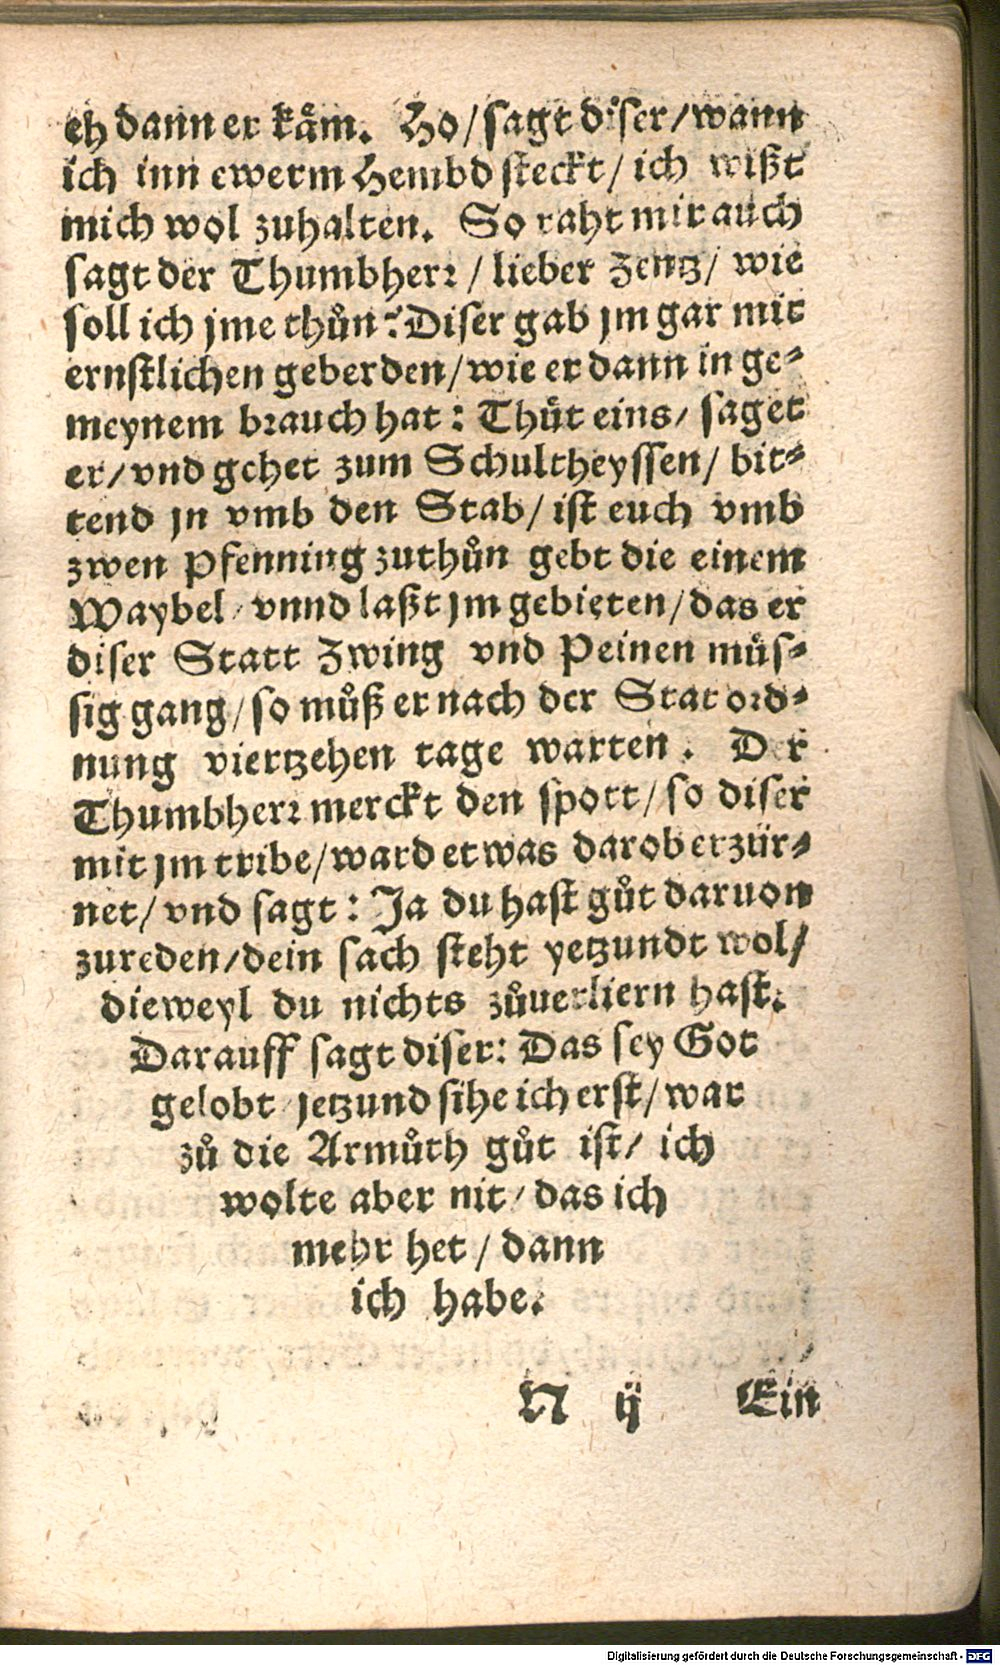 eh dann er kåm. Ho/ sagt diser/ wann
ich inn ewerm Hembd steckt/ ich wißt
mich wol zuhalten. So raht mir auch
sagt der Thumbherr/ lieber Zentz/ wie
soll ich jme thůn? Diser gab jm gar mit
ernstlichen geberden/ wie er dann in ge⸗
meynem brauch hat: Thůt eins/ saget
er/ vnd gehet zum Schultheyssen/ bit⸗
tend jn vmb den Stab/ ist euch vmb
zwen Pfenning zuthůn gebt die einem
Waybel/ vnnd laßt jm gebieten/ das er
diser Statt Zwing vnd Peinen můs⸗
sig gang/ so můß er nach der Stat ord⸗
nung viertzehen tage warten. Der
Thumbherr merckt den spott/ so diser
mit jm tribe/ ward etwas darob erzür⸗
net/ vnd sagt: Ja du hast gůt daruon
zureden/ dein sach steht yetzundt wol/
dieweyl du nichts zůuerliern hast.
Darauff sagt diser: Das sey Got
gelobt/ jetzund sihe ich erst/ war
zů die Armůth gůt ist/ ich
wolte aber nit/ das ich
mehr het/ dann
ich habe.
N ij Ein
Digitalisierung gefördert durch die Deutsche Forschungsgemeinschaft - DFG